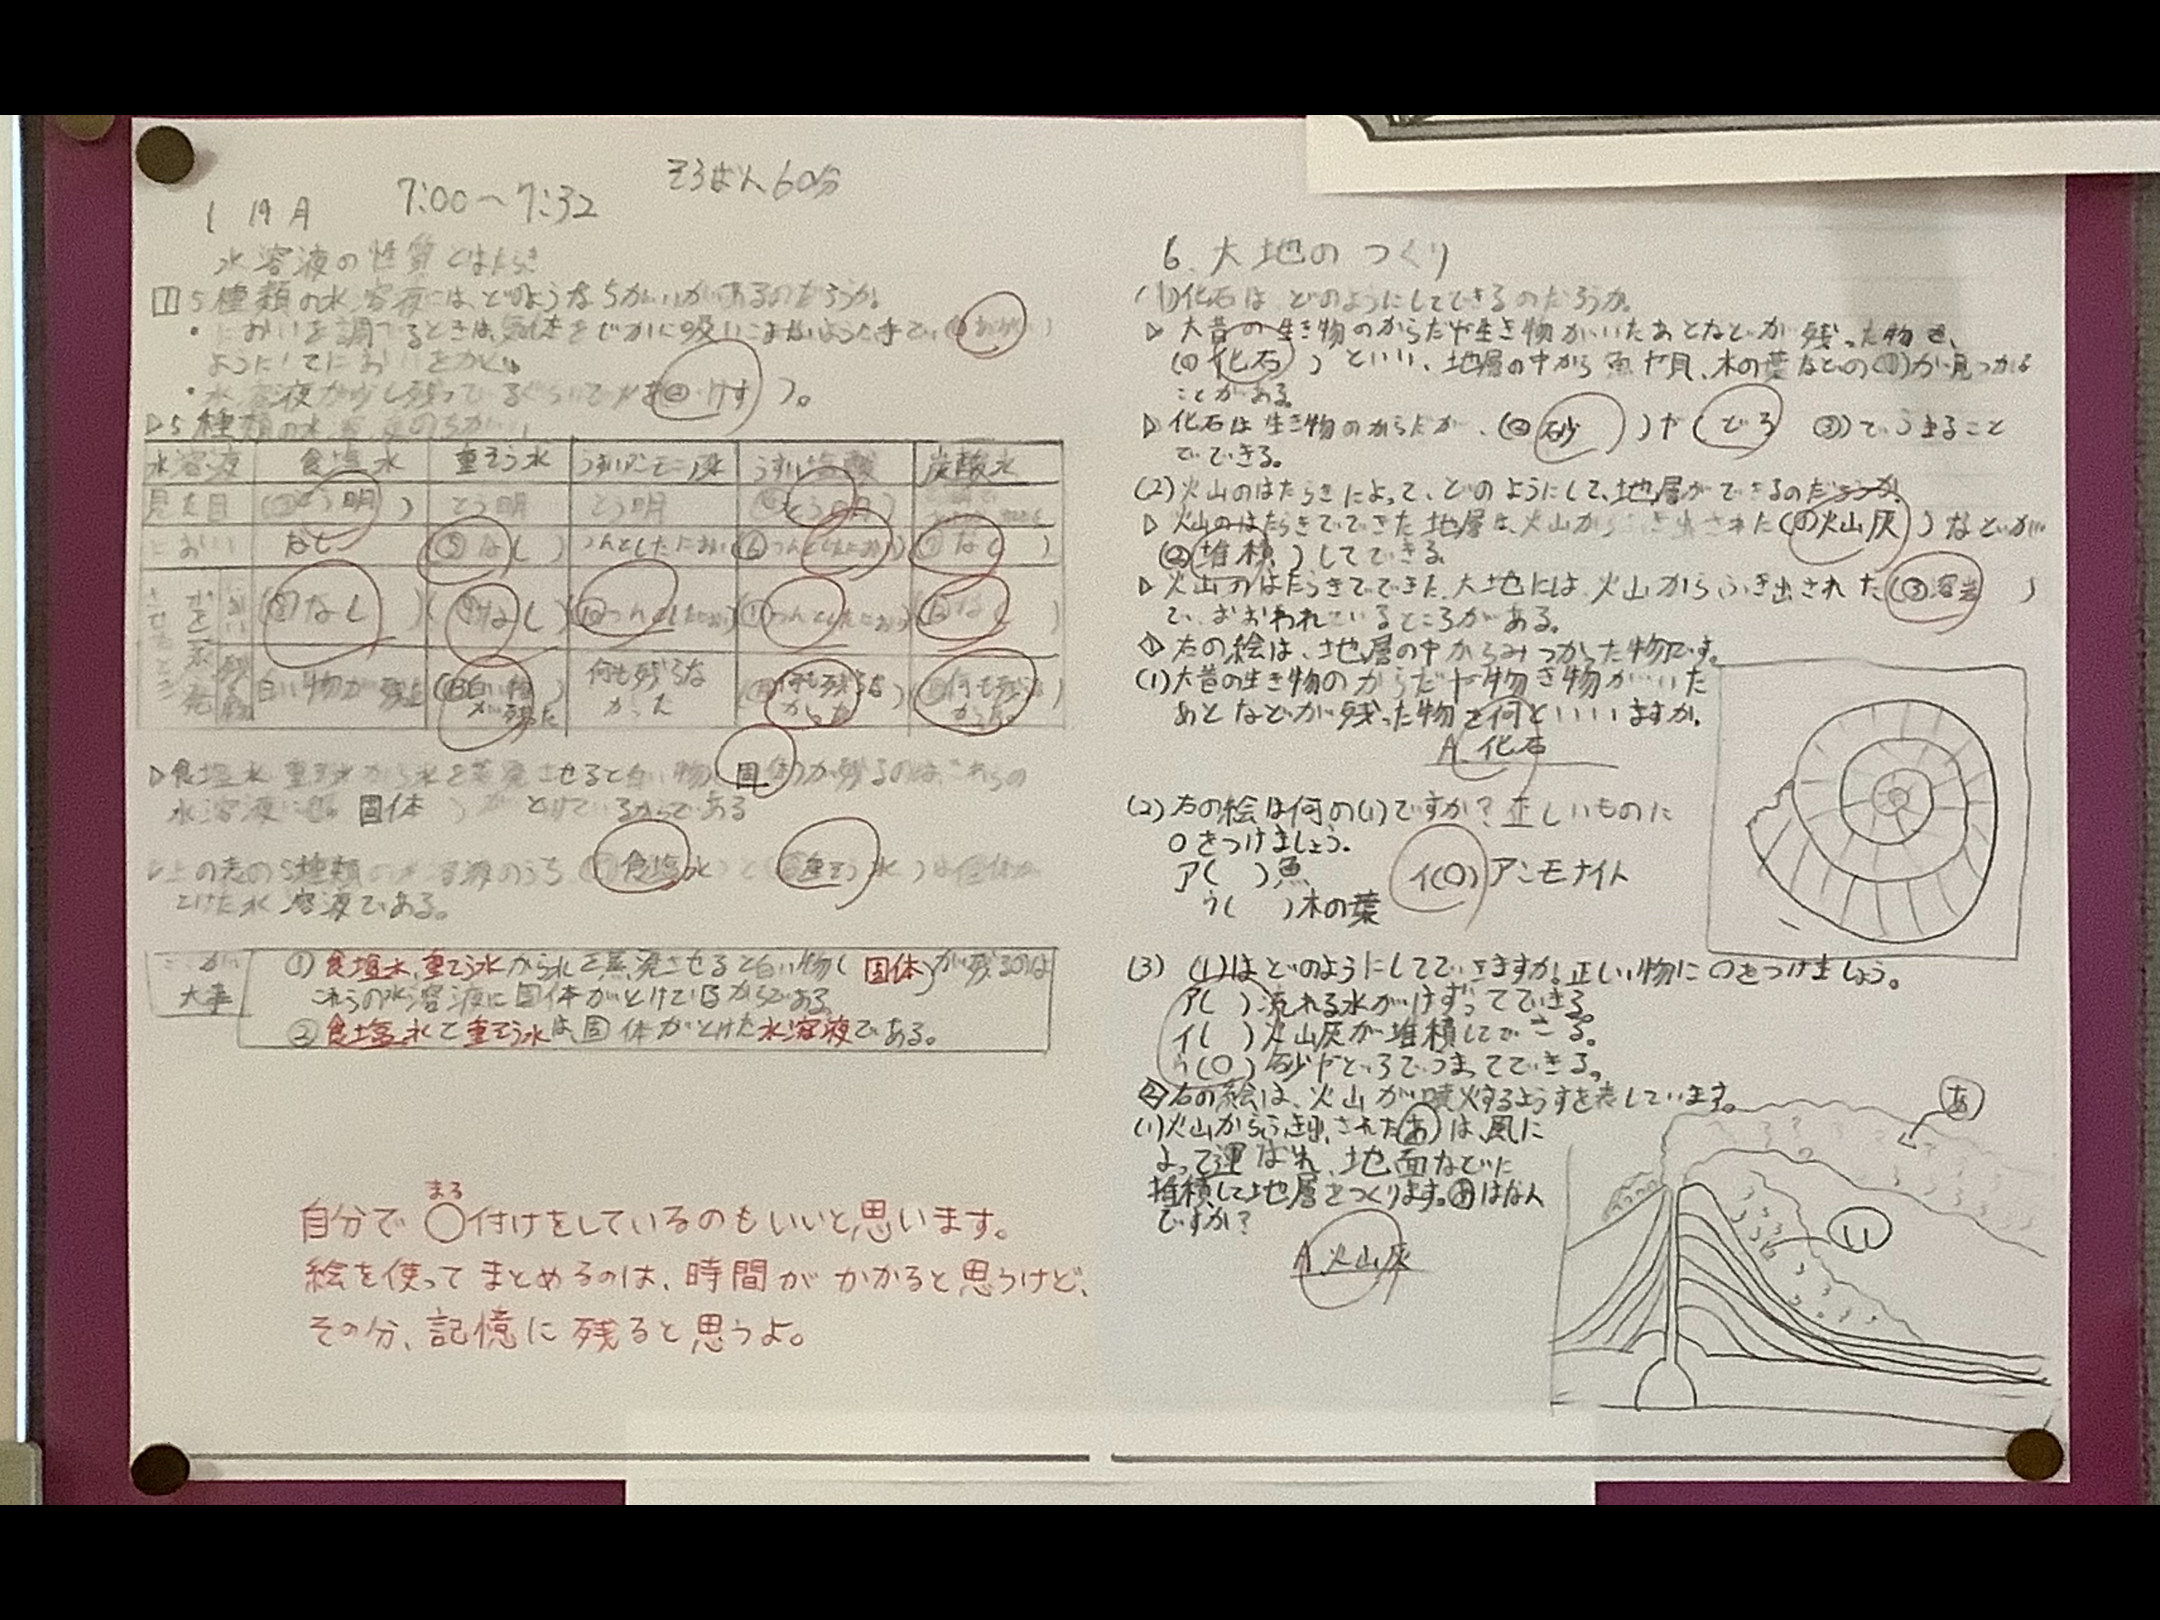 1 19 月 7:00～7:32 そろばん60分
水溶液の性質とはたらき
1 5種類の水溶液には、どのようなちがいがあるのだろうか。
・においを調べるときは、気体をじかに吸いこまないように手で、(①あおぐ)
ようにしてにおいをかぐ。
・水溶液が少し残っているぐらいで火を(②けす)。
▷5種類の水溶液のちがい
水溶液 食塩水 重そう水 うすいアンモニア水 うすい塩酸 炭酸水
見た目 (③とう明) とう明 とう明 (④とう明)
におい なし (⑤なし) つんとしたにおい (⑥つんとしたにおい) (⑦なし)
(⑧なし) (⑨なし) (⑩つんとしたにおい) (⑪つんとしたにおい) (⑫なし)
白い物が残った (⑬白い物が残った) 何も残らなかった (⑭何も残らなかった) (⑮何も残らなかった)
▷食塩水、重そう水から水を蒸発させると白い物(固体)が残るのは、これらの
水溶液に 固体 ) がとけているからである
▷上の表の5種類の水溶液のうち (食塩水)と(重そう水)は固体が
とけた水溶液である。
ここが
大事
① 食塩水、重そう水から水を蒸発させると白い物(固体)が残るのは
これらの水溶液に固体がとけているからである。
② 食塩水と重そう水は固体がとけた水溶液である。
まる
自分で〇付けをしているのもいいと思います。
絵を使ってまとめるのは、時間がかかると思うけど、
その分、記憶に残ると思うよ。
6. 大地のつくり
(1)化石は、どのようにしてできるのだろうか。
▷ 大昔の生き物のからだや生き物がいたあとなどが残った物を、
(①化石)といい、地層の中から魚や貝、木の葉などの(①)が見つかる
ことがある。
▷ 化石は生き物のからだが、(②砂)や(どろ ③)でうまること
でできる。
(2)火山のはたらきによって、どのようにして、地層ができるのだろうか。
▷ 火山のはたらきでできた地層は、火山からふき出された(①火山灰)などが
(②堆積)してできる
▷ 火山のはたらきでできた大地には、火山からふき出された(③溶岩)
で、おおわれているところがある。
① 右の絵は、地層の中からみつかった物です。
(1)大昔の生き物のからだや物き物がいた
あとなどが残った物を何といいますか。
A. 化石
(2)右の絵は何の(1)ですか？正しいものに
〇をつけましょう。
ア( )魚 イ(〇)アンモナイト
ウ( )木の葉
(3) (1)はどのようにしてできますか。正しい物に〇をつけましょう。
ア( )流れる水がけずってできる。
イ( )火山灰が堆積してできる。
ウ(〇)砂やどろでうまってできる。
② 右の絵は、火山が噴火するようすを表しています。
(1)火山からふき出されたあは、風に
よって運ばれ、地面などに
堆積して地層をつくります。あはなん
ですか？
A 火山灰
あ
い